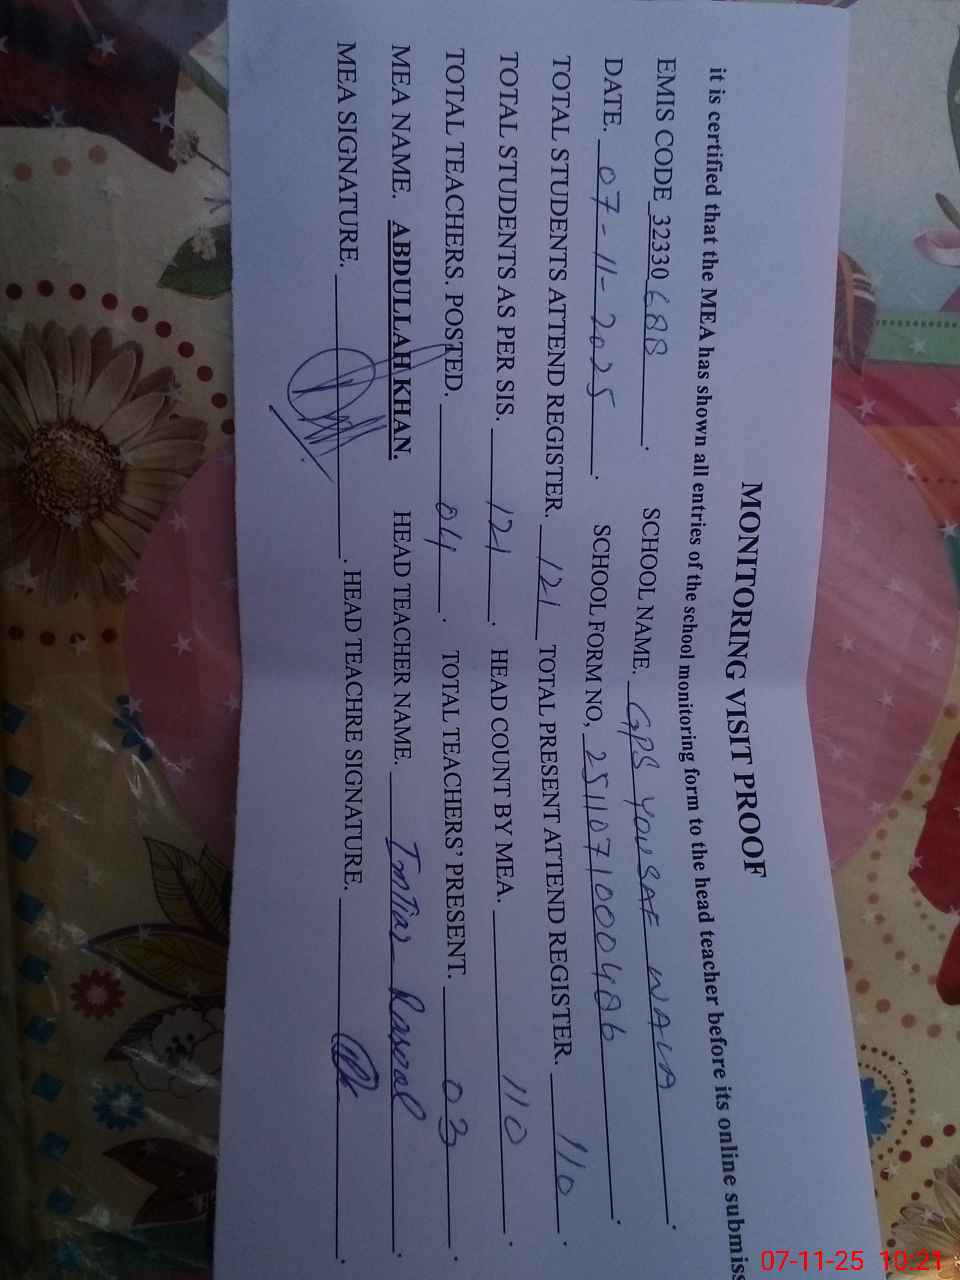 MONITORING VISIT PROOF
it is certified that the MEA has shown all entries of the school monitoring form to the head teacher before its online submiss
EMIS CODE 32330688. SCHOOL NAME. GPS YOUSAF WALA.
DATE. 07-11-2025. SCHOOL FORM NO, 2511071000486.
TOTAL STUDENTS ATTEND REGISTER. 121 TOTAL PRESENT ATTEND REGISTER. 110.
TOTAL STUDENTS AS PER SIS. 121. HEAD COUNT BY MEA. 110.
TOTAL TEACHERS. POSTED. 04. TOTAL TEACHERS' PRESENT. 03.
MEA NAME. ABDULLAH KHAN. HEAD TEACHER NAME. Imtiaz Rasool.
MEA SIGNATURE. . HEAD TEACHRE SIGNATURE. .
07-11-25 10:21